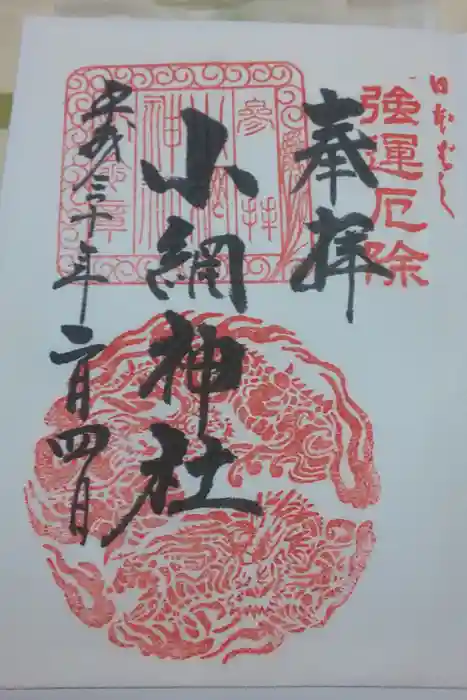 日本ばし
強運厄除
奉拝
小網神社
平成三十年二月四日